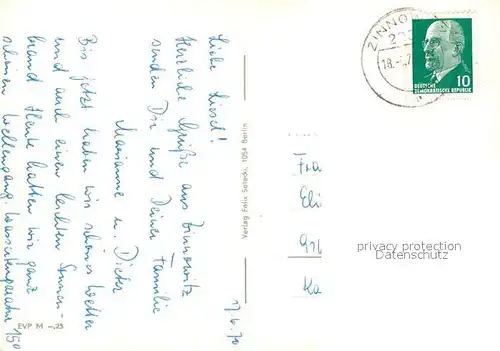 17.6.70
Liebe Liesel!
Herzliche Grüße aus Zinnowitz
senden Dir und Deiner Familie
Marianne u. Dieter
Bis jetzt haben wir schönes Wetter
und auch einen leichten Sonnen-
brand. Heute hatten wir ganz
schönen Wellengang. Wassertemperatur 15°
EVP M -,25
Verlag Felix Setecki, 1054 Berlin
ZINNOWITZ
18.
10
DEUTSCHE
DEMOKRATISCHE REPUBLIK
Fra
Eli
Ka
privacy protection
AnsichtskartenVersand.com